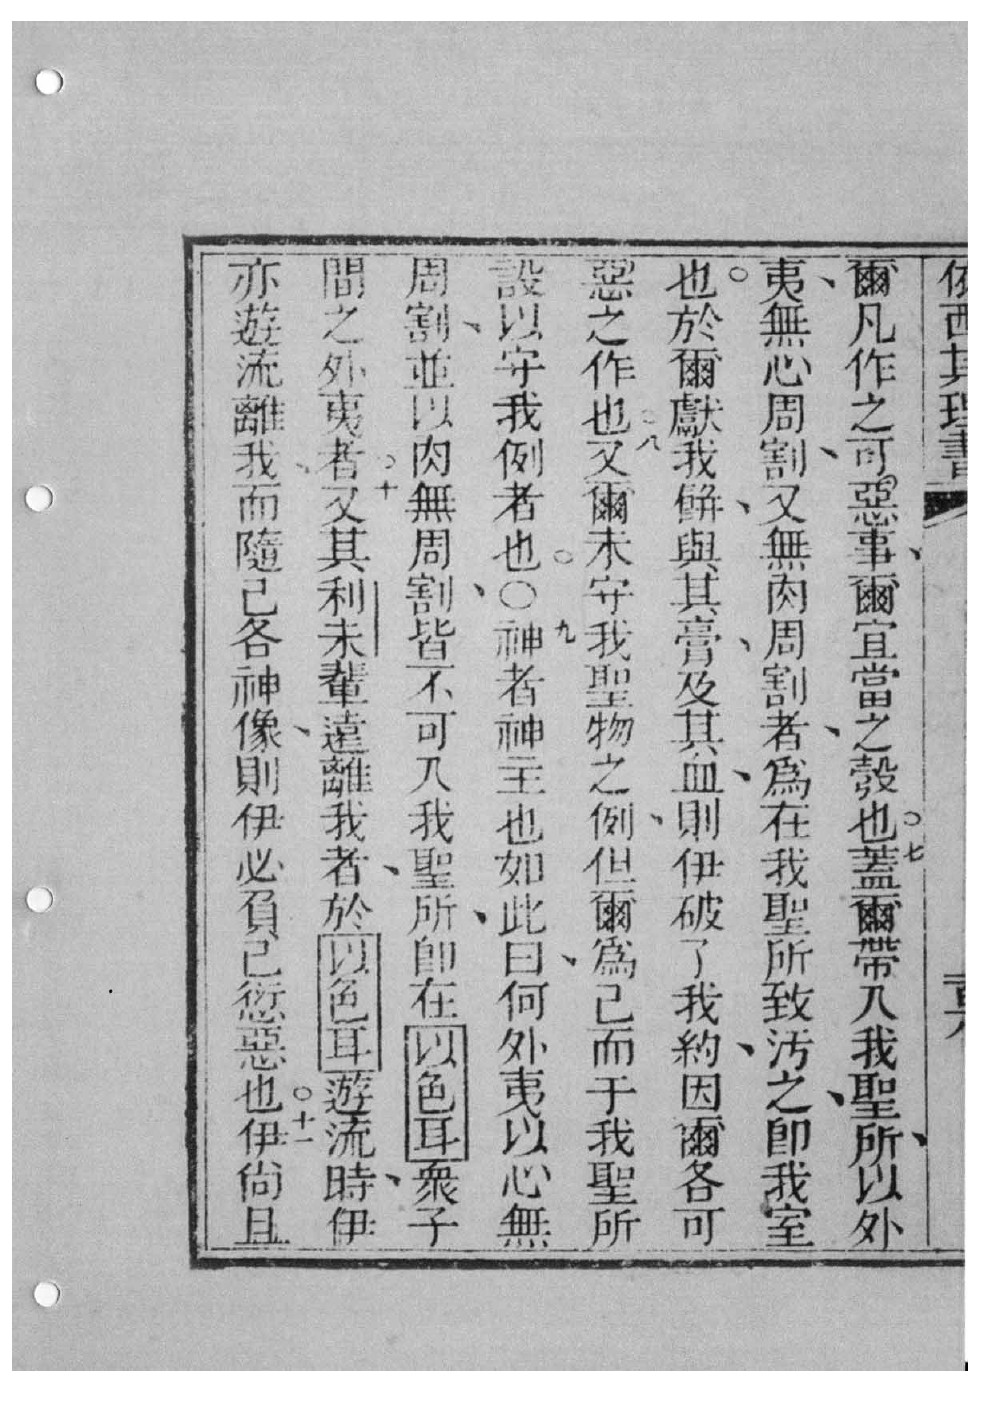 依西其理書
爾凡作之可惡事爾宜當之彀也○七蓋爾帶入我聖所以外
夷無心周割又無肉周割者爲在我聖所致污之卽我室
也○於爾獻我餅與其膏及其血則伊破了我約因爾各可
惡之作也○八又爾未守我聖物之例但爾爲己而于我聖所
設以守我例者也○○九神者神主也如此曰何外夷以心無
周割並以肉無周割皆不可入我聖所卽在以色耳衆子
間之外夷者○十又其利未輩遠離我者於以色耳遊流時伊
亦遊流離我而隨己各神像則伊必負己愆惡也○十一伊尙且